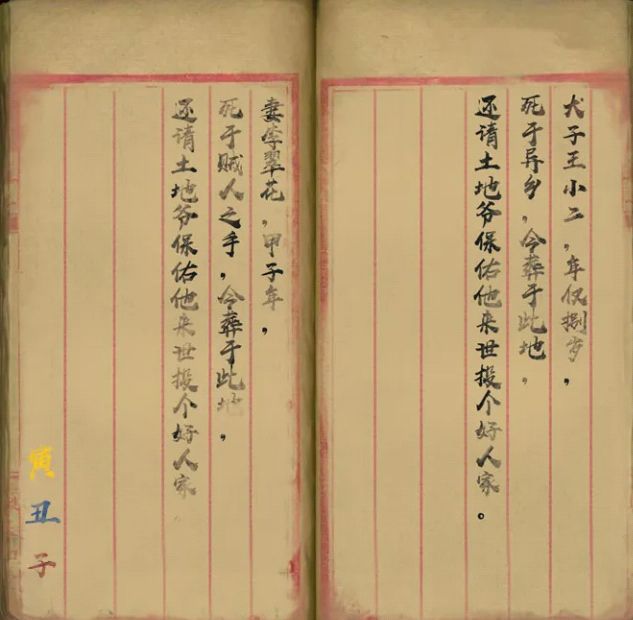 犬子王小二，年仅捌岁，
死于异乡，今葬于此地，
还请土地爷保佑他来世投个好人家。
妻李翠花，甲子年，
死于贼人之手，今葬于此地，
还请土地爷保佑他来世投个好人家
寅
丑
子